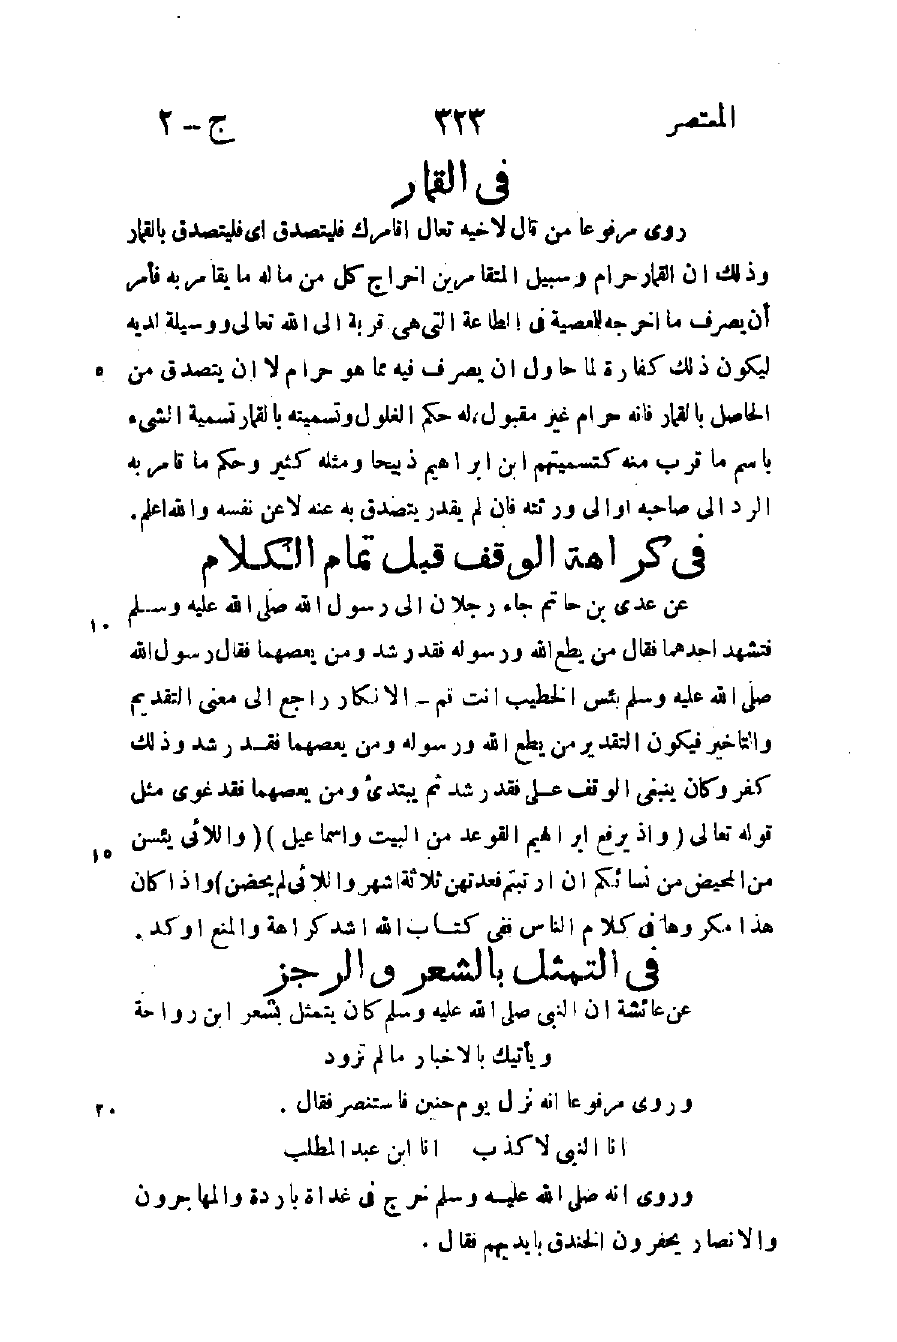 المعتصر ٣٢٣ ج – ٢
فى القمار
روى مرفوعا من قال لاخيه تعال اقامرك فليتصدق اى فليتصدق بالقمار
وذلك ان القمار حرام وسبيل المتقامرين اخراج كل من ماله ما يقامر به فأمر
أن يصرف ما اخرجه للمعصية فى الطاعة التى هى قربة الى الله تعالى ووسيلة لديه
ليكون ذلك كفارة لما حاول ان يصرف فيه مما هو حرام لا ان يتصدق من ٥
الحاصل بالقمار فانه حرام غير مقبول، له حكم الغلول وتسميته بالقمار تسمية الشىء
باسم ما قرب منه كتسميتهم ابن ابراهيم ذبيحا ومثله كثير وحكم ما قامر به
الرد الى صاحبه او الى ورثته فان لم يقدر يتصدق به عنه لا عن نفسه والله اعلم.
فى كراهة الوقف قبل تمام الكلام
عن عدى بن حاتم جاء رجلان الى رسول الله صلى الله عليه وسلم ١٠
فتشهد احدهما فقال من يطع الله ورسوله فقد رشد ومن يعصهما فقال رسول الله
صلى الله عليه وسلم بئس الخطيب انت قم – الانكار راجع الى معنى التقديم
والتاخير فيكون التقدير من يطع الله ورسوله ومن يعصهما فقد رشد وذلك
كفر وكان ينبغى الوقف على فقد رشد ثم يبتدئ ومن يعصهما فقد غوى مثل
قوله تعالى (واذ يرفع ابراهيم القواعد من البيت واسماعيل) (واللائى يئسن ١٥
من المحيض من نسائكم ان ارتبتم فعدتهن ثلاثة اشهر واللائى لم يحضن) واذا كان
هذا مكروها فى كلام الناس ففى كتاب الله اشد كراهة والمنع اوكد.
فى التمثل بالشعر والرجز
عن عائشة ان النبى صلى الله عليه وسلم كان يتمثل بشعر ابن رواحة
ويأتيك بالاخبار ما لم تزود
وروى مرفوعا انه نزل يوم حنين فاستنصر فقال. ٢٠
انا النبى لا كذب انا ابن عبد المطلب
وروى انه صلى الله عليه وسلم خرج فى غداة باردة والمهاجرون
والانصار يحفرون الخندق بايديهم فقال.